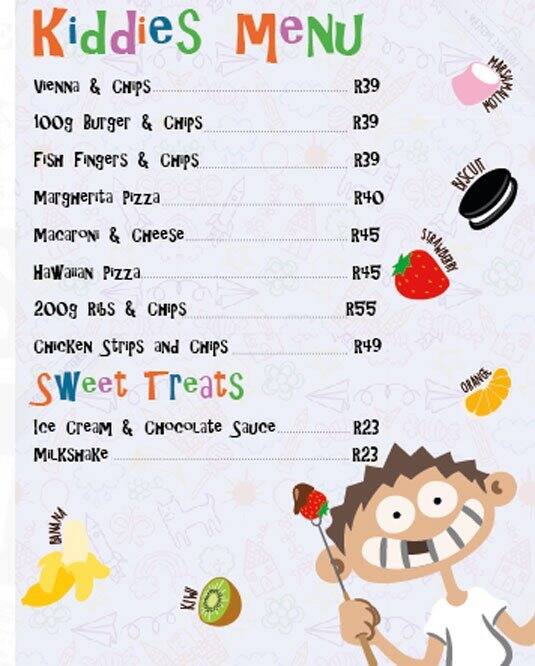 Kiddies Menu
Vienna & Chips R39
100g Burger & Chips R39
Fish Fingers & Chips R39
Margherita Pizza R40
Macaroni & Cheese R45
Hawaiian Pizza R45
200g Ribs & Chips R55
Chicken Strips and Chips R49
Sweet Treats
Ice Cream & Chocolate Sauce R23
Milkshake R23
MARSHMALLOW
BISCUIT
STRAWBERRY
ORANGE
BANANA
KIWI